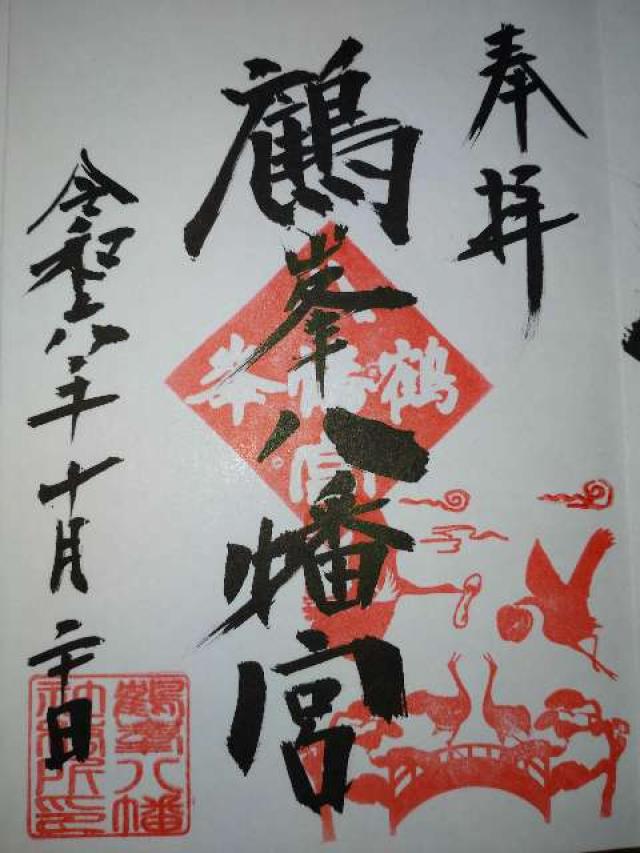 奉拝
鶴峯八幡宮
令和六年十月二十日
鶴峯八幡宮
鶴峯八幡
神務所印